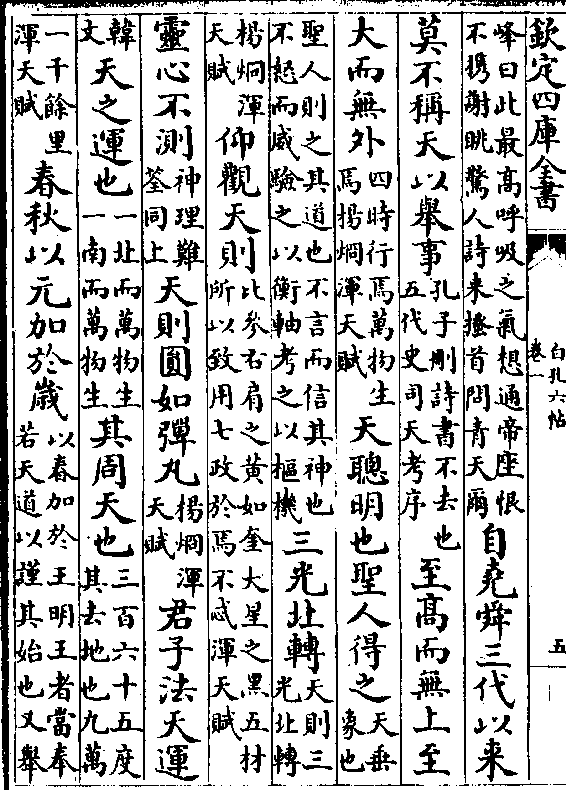 欽定四庫全書
白孔六帖
卷一
五
峰曰此最高呼吸之氣想通帝座恨
不攜謝眺驚人詩來搔首問青天爾
自堯舜三代以來
莫不稱天以舉事
孔子刪詩書不去也
五代史司天考序
至髙而無上至
大而無外
四時行焉萬物生
焉楊烱渾天賦
天聰明也聖人得之
天垂
象也
聖人則之其道也不言而信其神也
不怒而威驗之以衡軸考之以樞機
三光北轉
天則三
光北轉
楊烱渾
天賦
仰觀天則
比參右肩之黄如奎大星之黑五材
所以致用七政於焉不忒渾天賦
靈心不測
神理難
筌同上
天則圓如彈丸
楊烱渾
天賦
君子法天運
韓
文
天之運也
一北而萬物生
一南而萬物生
其周天也
三百六十五度
其去地也九萬
一千餘里
渾天賦
春秋以元加於歲
以春加於王明王者當奉
若天道以謹其始也又舉